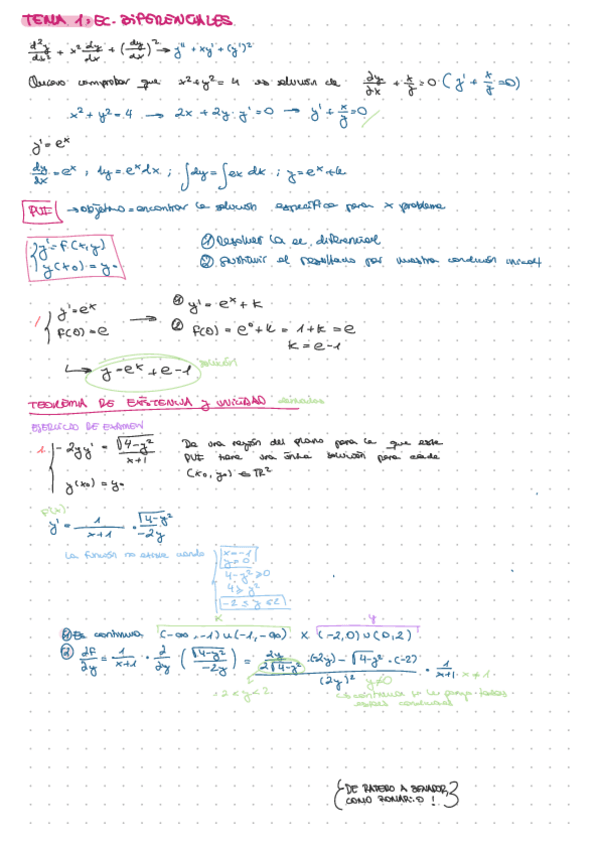 TEMA 1: EC. DIFERENCIALES
d²y/dx² + x² dy/dx + (dy/dx)² → y'' + xy' + (y')²
Quiero comprobar que x²+y²=4 es solución de dy/dx + x/y = 0 (y' + x/y = 0)
x²+y²=4 → 2x + 2y·y' = 0 → y' + x/y = 0
y' = eˣ
dy/dx = eˣ ; dy = eˣ dx ; ∫dy = ∫ex dx ; y = eˣ+k
PVI → objetivo = encontrar la solución específica para x problema
{ y' = f(x,y)
y(x₀) = y₀
① Resolver la ec. diferencial
② Sustituir el resultado por nuestra condición
{ y' = eˣ
f(0) = e
→
① y' = eˣ + k
② f(0) = e⁰ + k = 1 + k = e
k = e-1
↳ y = eˣ + e - 1 solución
TEOREMA DE EXISTENCIA y UNICIDAD
EJERCICIO DE EXAMEN
1. { -2yy' = √4-y² / x+1
y(x₀) = y₀
Da una región del plano para la que este
PVI tiene una única solución para cada
(x₀, y₀) ∈ ℝ²
y' = 1/x+1 · √4-y² / -2y
La función no existe cuando
{ x = -1
y = 0
4-y² ≥ 0
4 ≥ y²
-2 ≤ y ≤ 2
x
y
① Es continua (-∞, -1) ∪ (-1, -∞) x (-2,0) ∪ (0,2)
② df/dy = 1/x+1 · d/dy · (√4-y² / -2y) = 2y / 2√4-y² · (2y) - √4-y² · (-2) / (2y)² · 1/x+1 · x ≠ 1
-2 < y < 2
y ≠ 0
{DE RATERO A SENADOR,
COMO ROMARIO!}